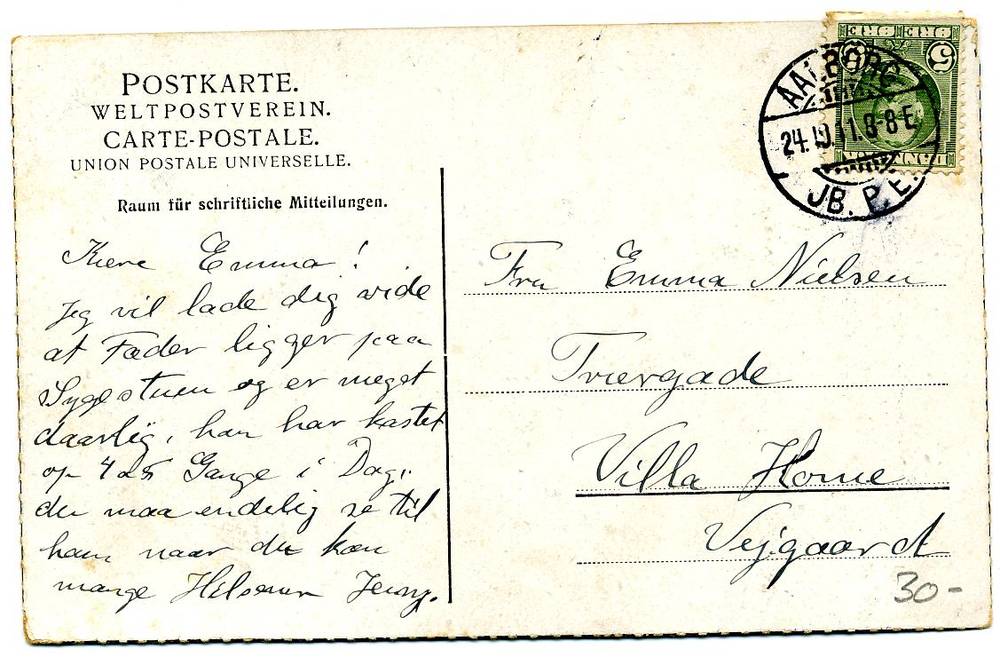 POSTKARTE.
WELTPOSTVEREIN.
CARTE-POSTALE.
UNION POSTALE UNIVERSELLE.
Raum für schriftliche Mitteilungen.
Kære Emma!
Jeg vil lade dig vide
at Fader ligger paa
Sygestuen og er meget
daarlig, han har kastet
op 4 a 5 Gange i Dag,
du maa endelig se til
ham naar du kan
mange Hilsener Jenny.
5 ØRE ØRE 5
DANMARK
AALBORG
24.10.11.8-8E
JB.P.E.
Fru Emma Nielsen
Tværgade
Villa Home
Vejgaard
30-